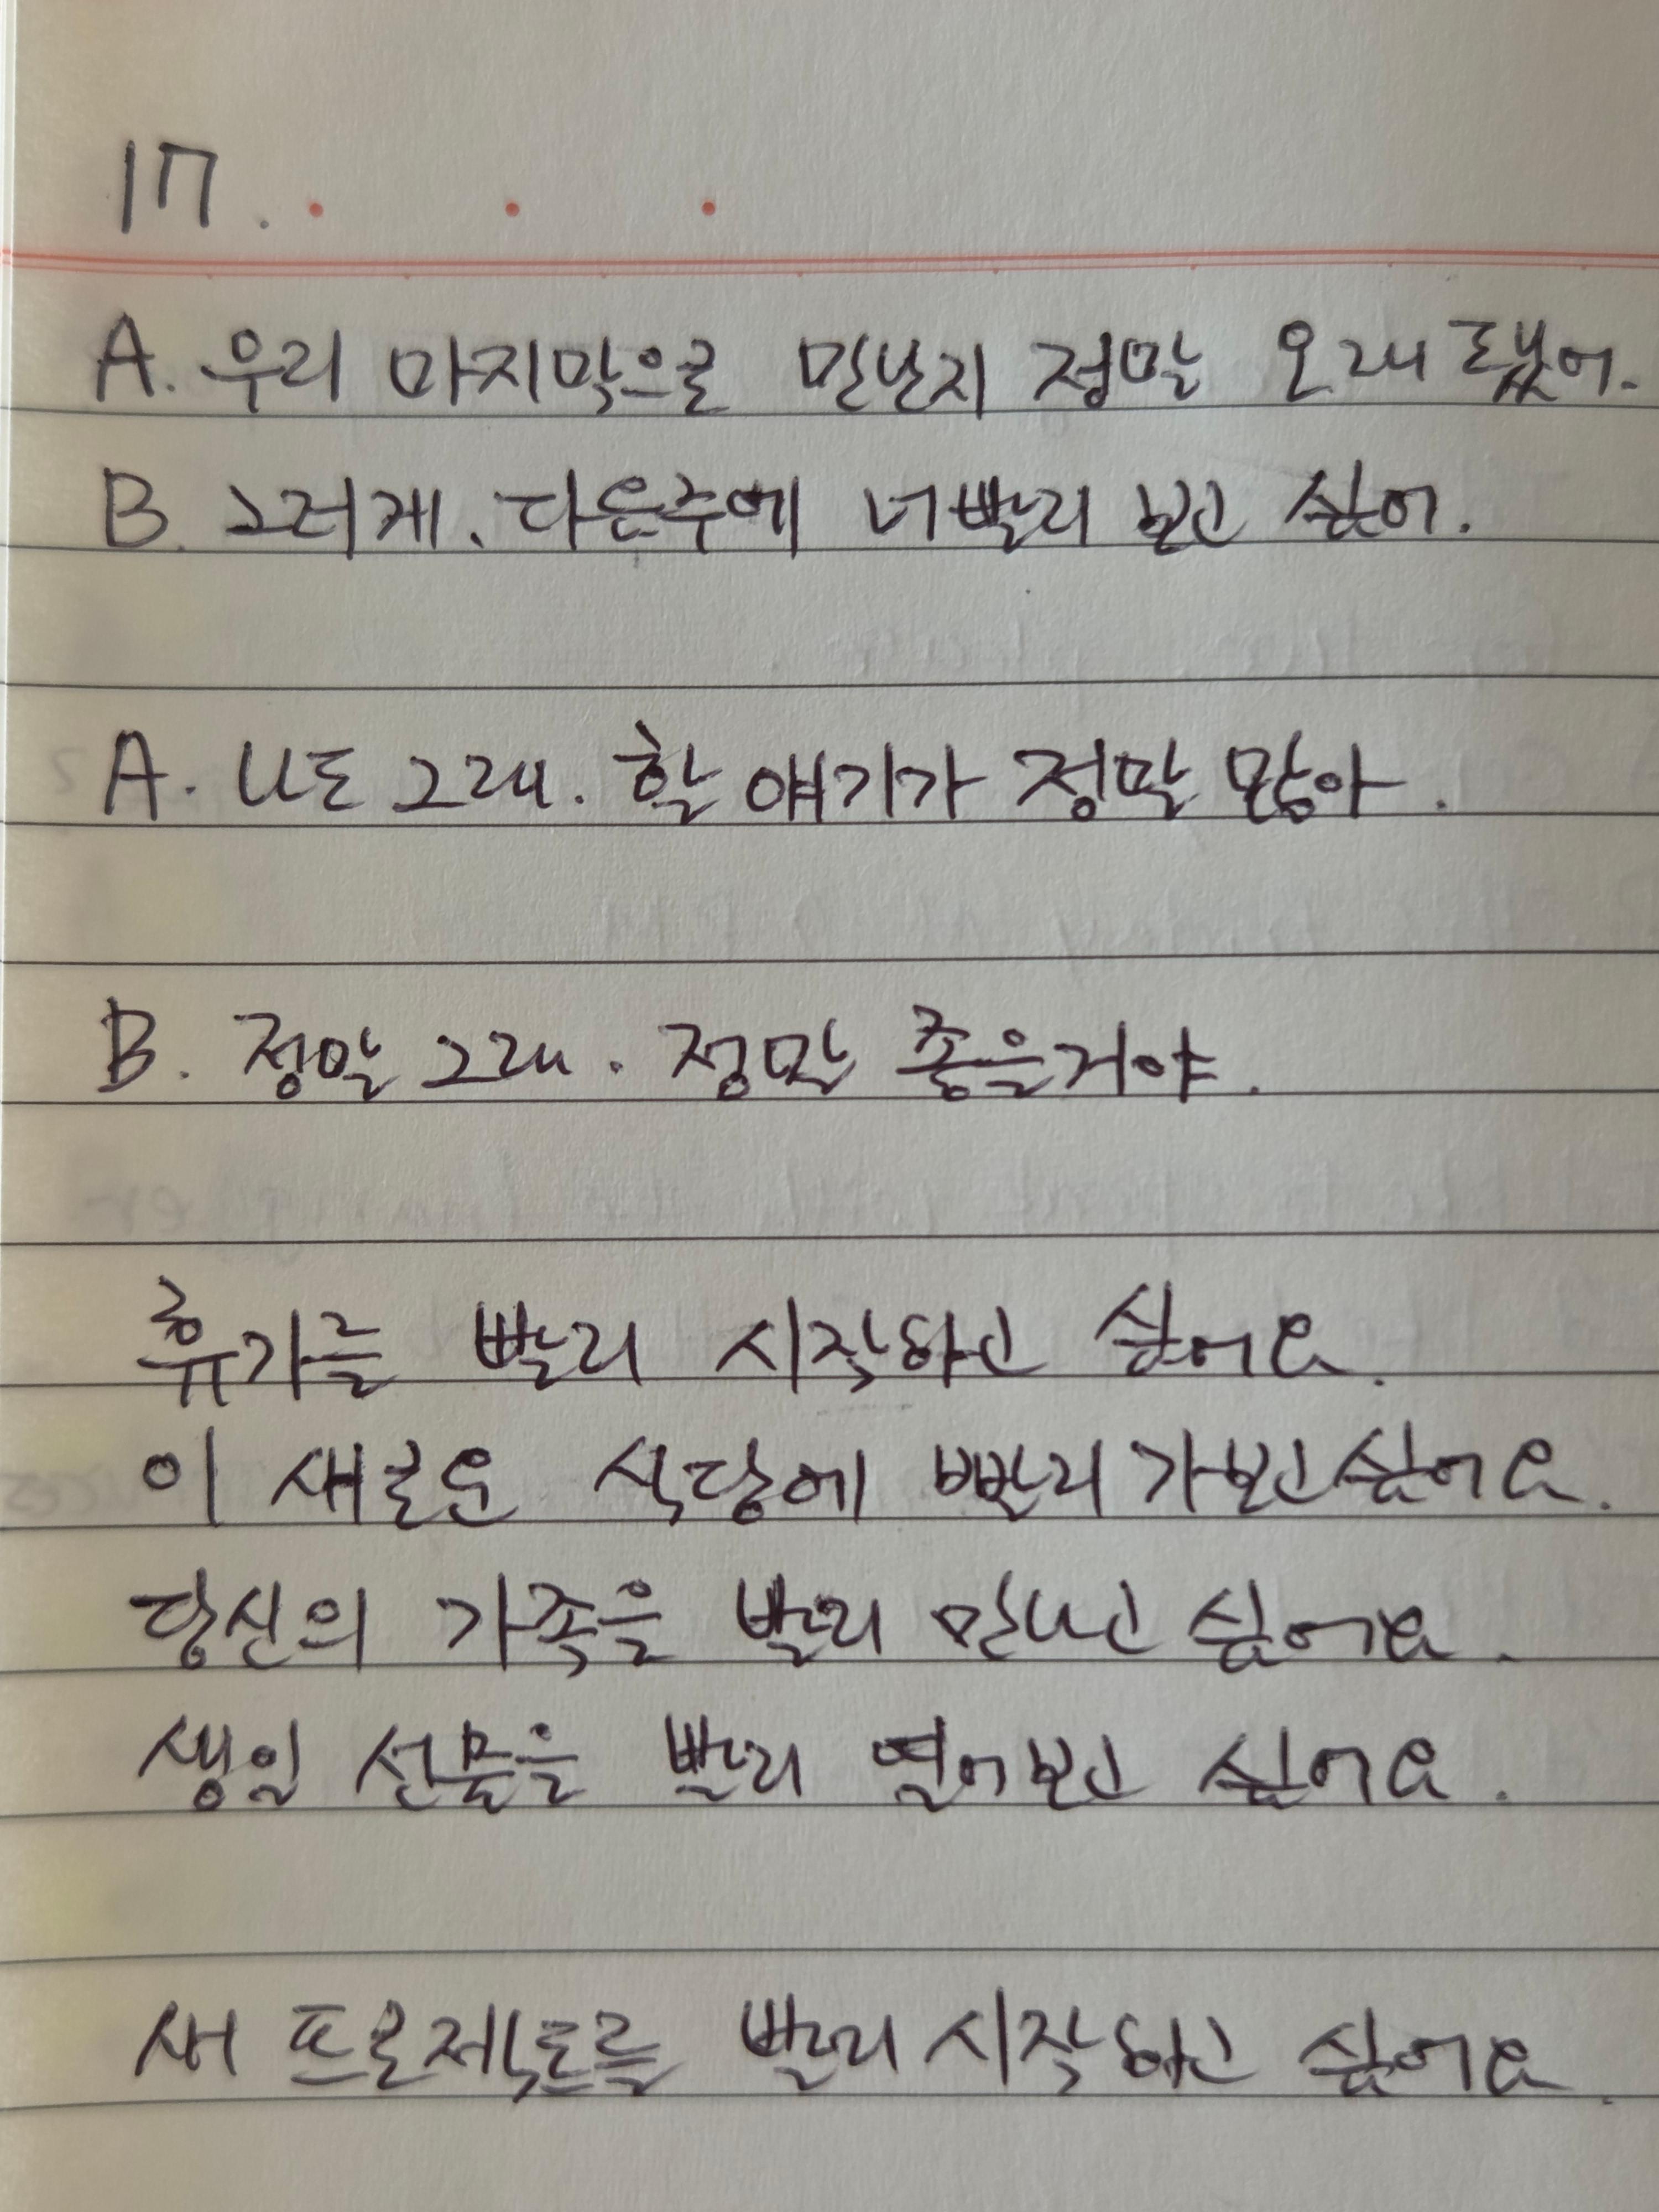 17.
A. 우리 마지막으로 만난지 정말 오래됐어.
B. 그러게. 다음주에 너 빨리 보고 싶어.
A. 나도 그래. 할 얘기가 정말 많아.
B. 정말 그래. 정말 좋을거야.
휴가를 빨리 시작하고 싶어요.
이 새로운 식당에 빨리 가보고 싶어요.
당신의 가족을 빨리 만나고 싶어요.
생일 선물을 빨리 열어보고 싶어요.
새 프로젝트를 빨리 시작하고 싶어요.